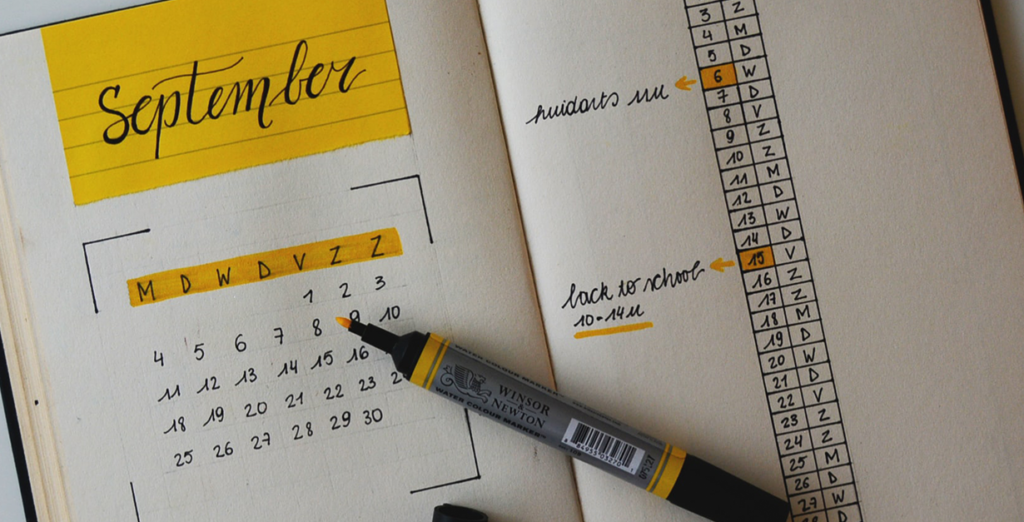 September
M D W D V Z Z
1 2 3
4 5 6 7 8 9 10
11 12 13 14 15 16
18 19 20 21 22 23
25 26 27 28 29 30
WATER COLOUR MARKER
WINSOR
&
NEWTON
WATER COLOUR MARKER™
back to school
10-14u
3 Z
4 M
5 D
6 W
7 D
8 V
9 Z
10 Z
11 M
12 D
13 W
14 D
15 V
16 Z
17 Z
18 M
19 D
20 W
21 D
22 V
23 Z
24 Z
25 M
26 D
27 W
28 D